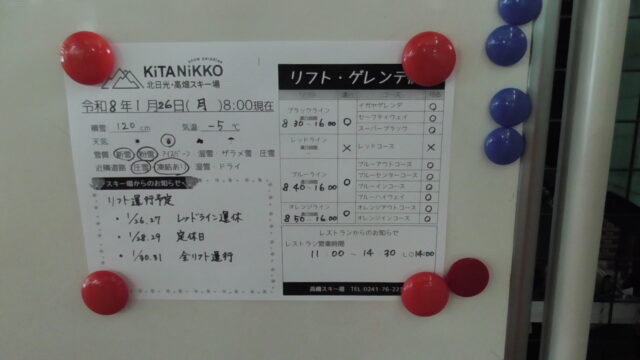 KiTANiKKO
北日光・高畑スキー場
令和8年1月26日(月)8:00現在
積雪 120cm 気温 -5℃
天気
雪質 新雪 粉雪 アイスバーン 湿雪 ザラメ雪 圧雪
近隣道路 圧雪 凍結あり 湿雪・ドライ
スキー場からのお知らせ
リフト運行予定
・1/26.27 レッドライン運休
・1/28.29 定休日
・1/30.31 全リフト運行
リフト・ゲレンデ
ブラックライン
8:30~16:00
○
イガヤゲレンデ ○
セーフティウェイ ○
スーパーブラック ○
レッドライン
×
レッドコース ×
ブルーライン
8:40~16:00
○
ブルーアウトコース ○
ブルーセンターコース ○
ブルーインコース ○
ブルーハイウェイ ○
オレンジライン
8:50~16:00
○
オレンジアウトコース ○
オレンジインコース ○
レストランからのお知らせ
レストラン営業時間
11:00~14:30 LO14:00
高畑スキー場 TEL 0241-76-22